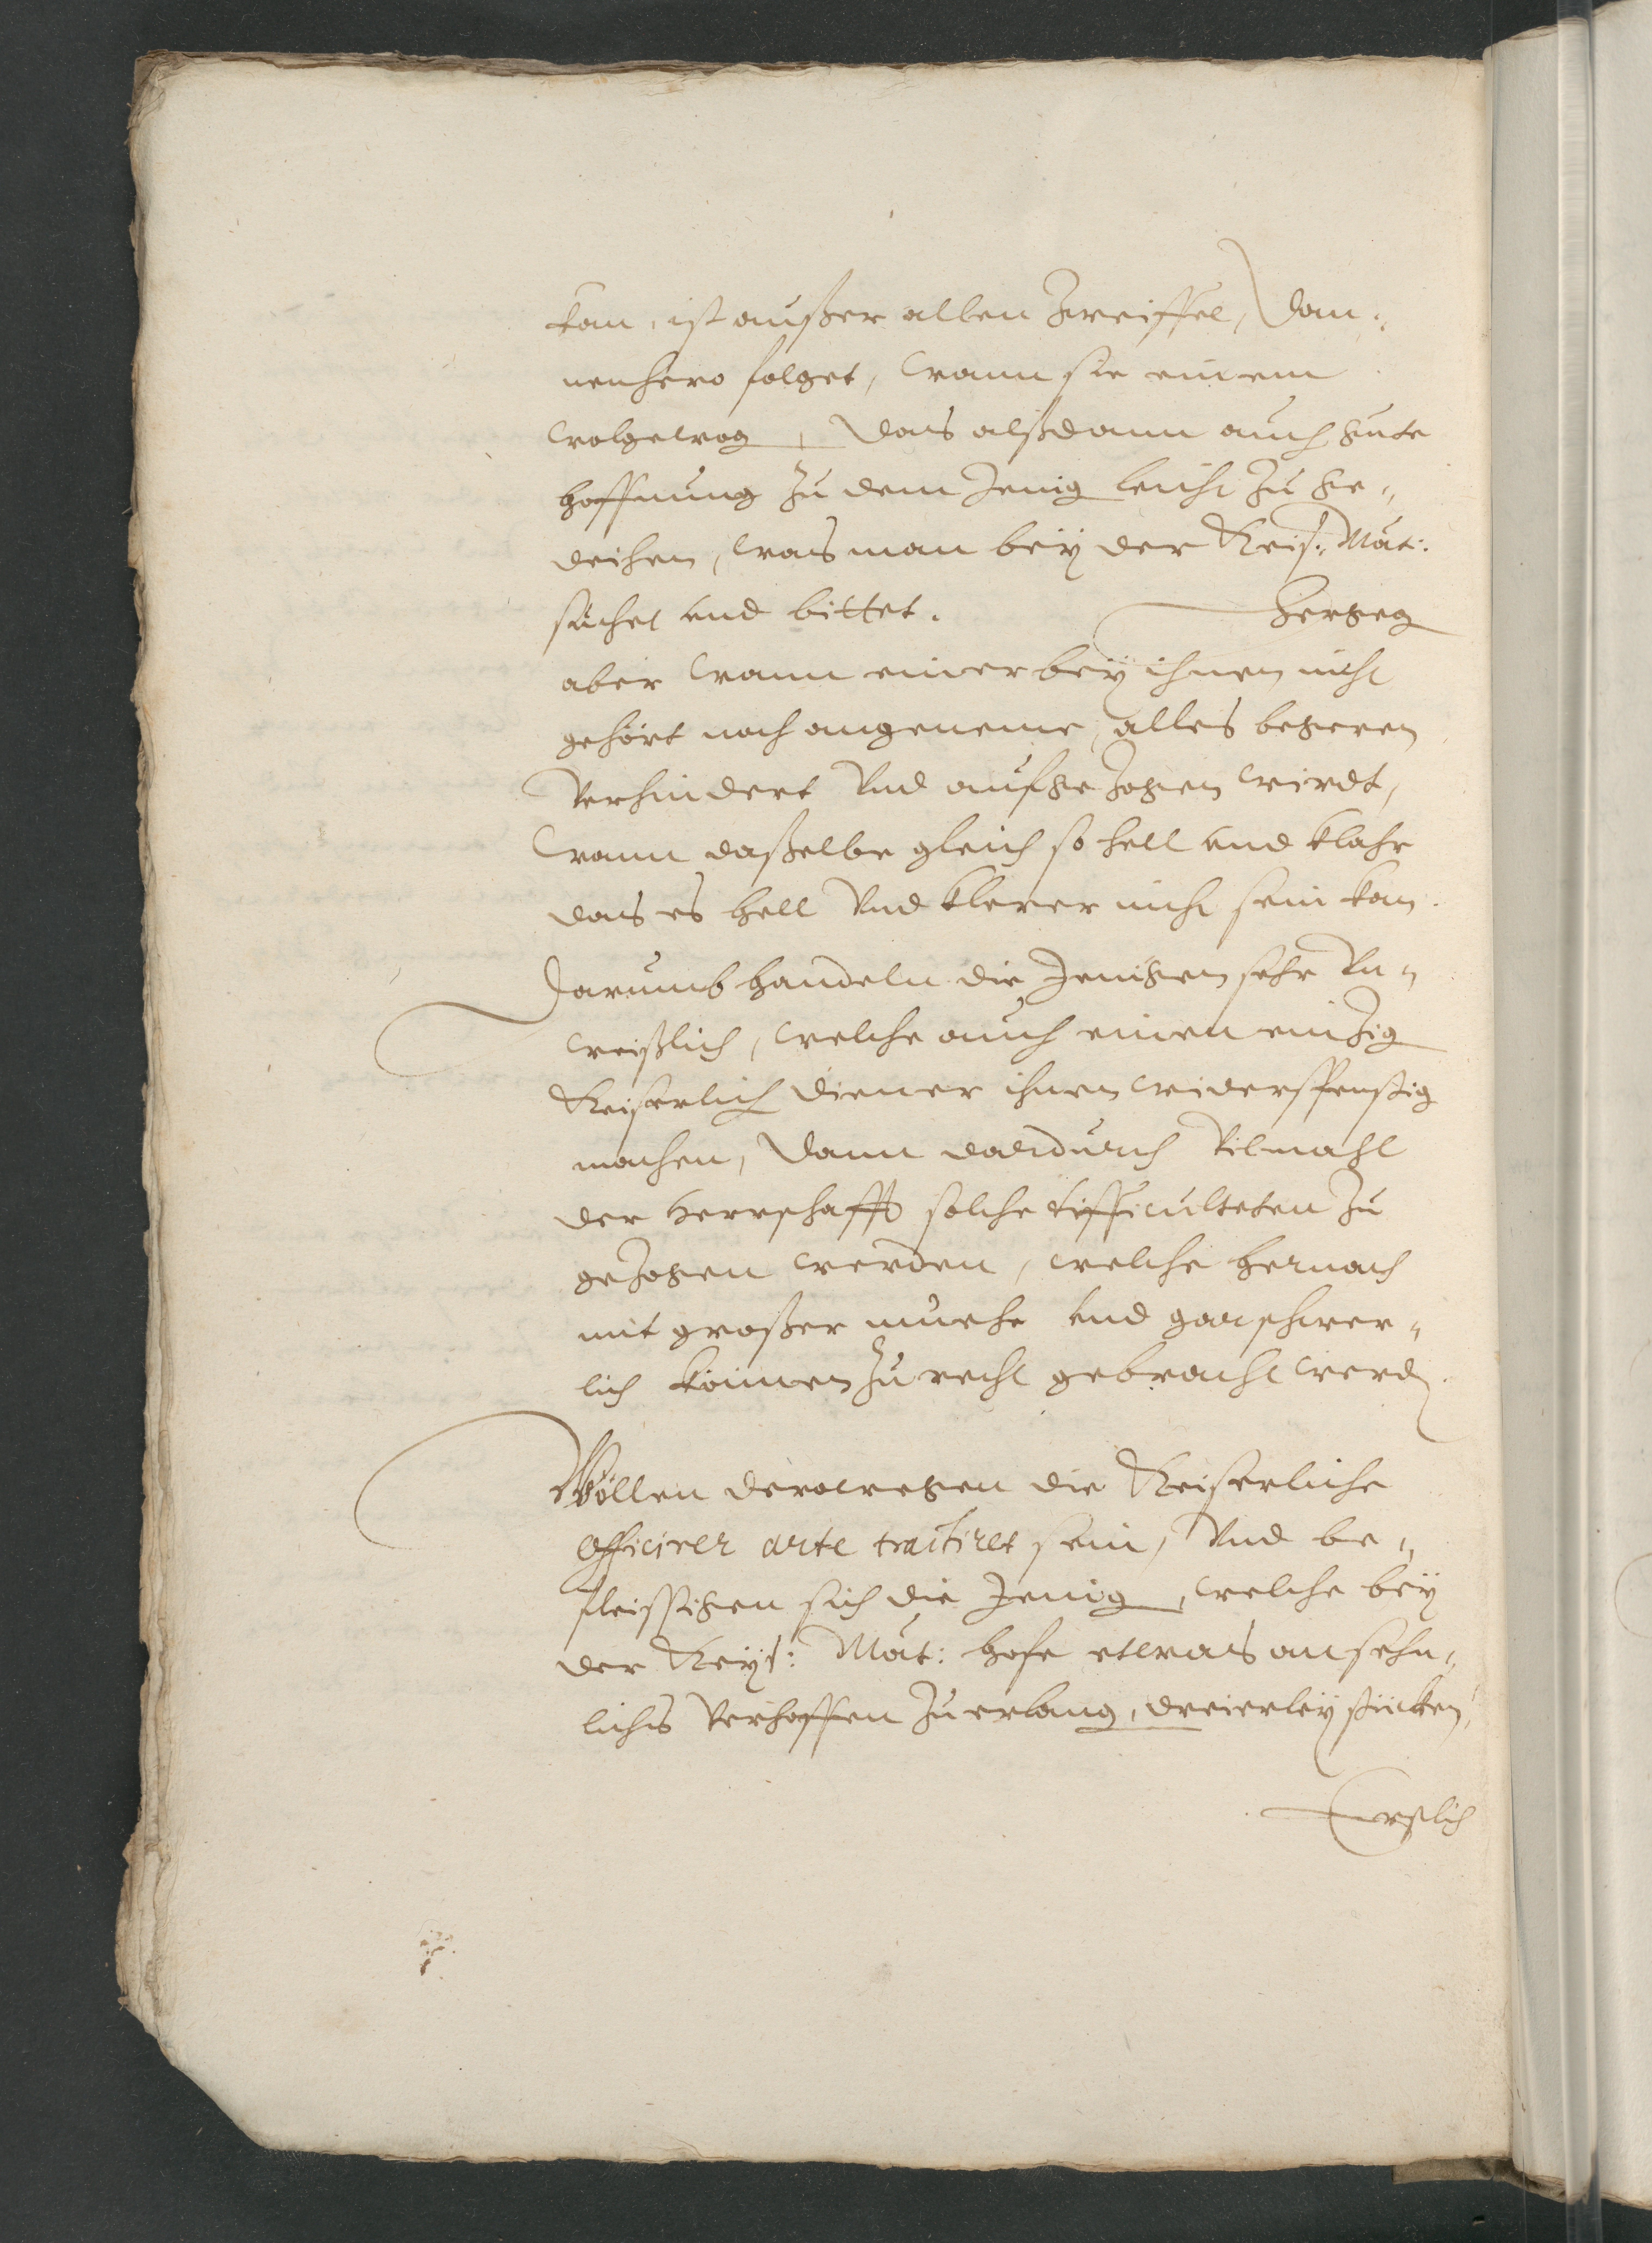 kan, ist außer allen Zweiffel, Dan¬
nenhero folget, wann sie einem
wolgewog, Das alßdann auch gute
hoffnung zu dem Jenig leicht zu ge¬
deihen, was man beÿ der Keiß: Maÿt:
suchet vnd bittet. Hergeg
aber wann einer beÿ ihnen nicht
gehört noch angeneme, alles begeren
Verhindert Vnd aufgezogen wirdt,
wann daßelbe gleich so hell vnd klahr
das es hell Vnd klerer nicht sein kan.
Darumb handeln die Jenigen sehr Vn¬
weißlich, welche auch einen einzig
Keiserlich diener ihnen widerspenstig
machen, Dann dardurch Vilmahl
der Herrschafft solche difficulteten zu
gezogen werden, welche hernach
mit großer muehe vnd gar schwer¬
lich können zu recht gebracht werd.
Wöllen derowegen die Keiserliche
Officirer arte tractiret sein, Vnd be¬
fleissigen sich die Jenig, welche beÿ
der Keÿs: Maÿt: hofe etwas ansehn¬
lichs Verhoffen zu erlang, dreierleÿ stücken,
Erstlich